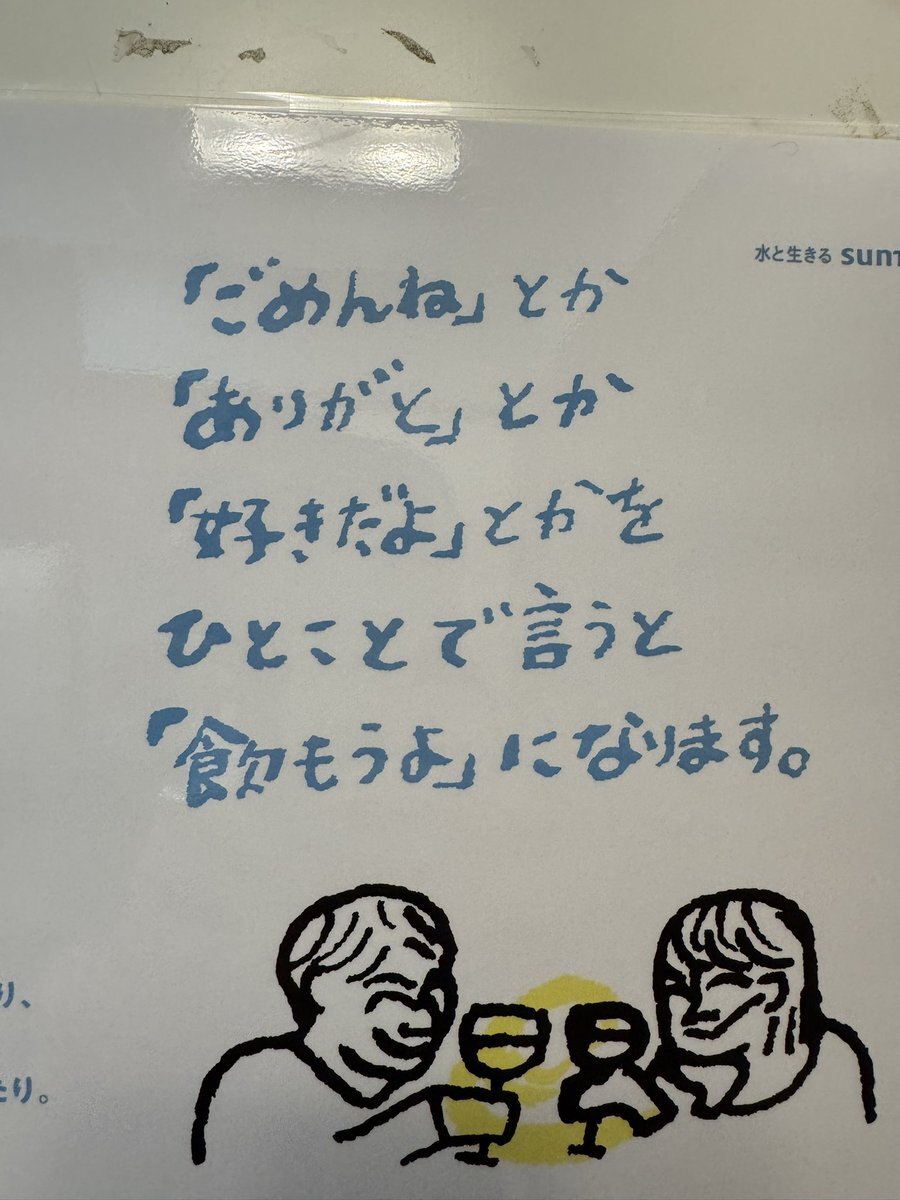 水と生きる SUNT
「ごめんね」とか
「ありがと」とか
「好きだよ」とかを
ひとことで言うと
「飲もうよ」になります。
り、
たり。